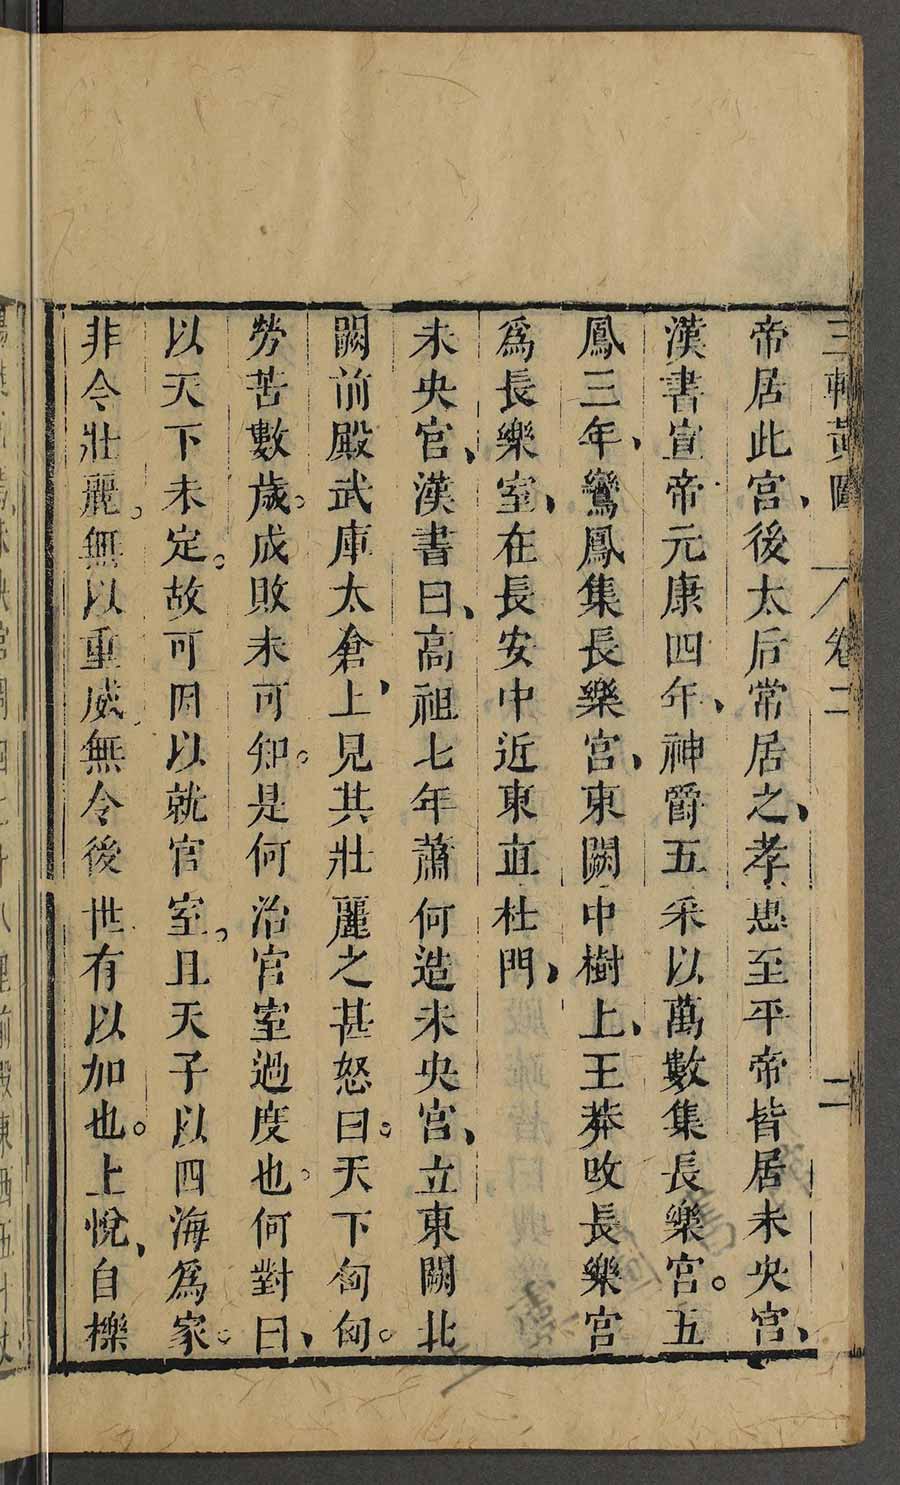 三輔黃圖 卷二 二
帝居此宫、後太后常居之、孝惠至平帝皆居未央宫、
漢書宣帝元康四年、神爵五采以萬數集長樂宫。五
鳳三年、鸞鳳集長樂宫、東闕中樹上、王莽改長樂宫
爲長樂室、在長安中近東直杜門、
未央宫、漢書曰、高祖七年蕭何造未央宫、立東闕北
闕前殿武庫太倉、上見其壯麗之甚怒曰。天下匈匈。
勞苦數歲。成敗未可知。是何治宫室過度也。何對曰、
以天下未定。故可因以就宫室。且天子以四海爲家。
非令壯麗。無以重威無令後世有以加也。上悅、自櫟